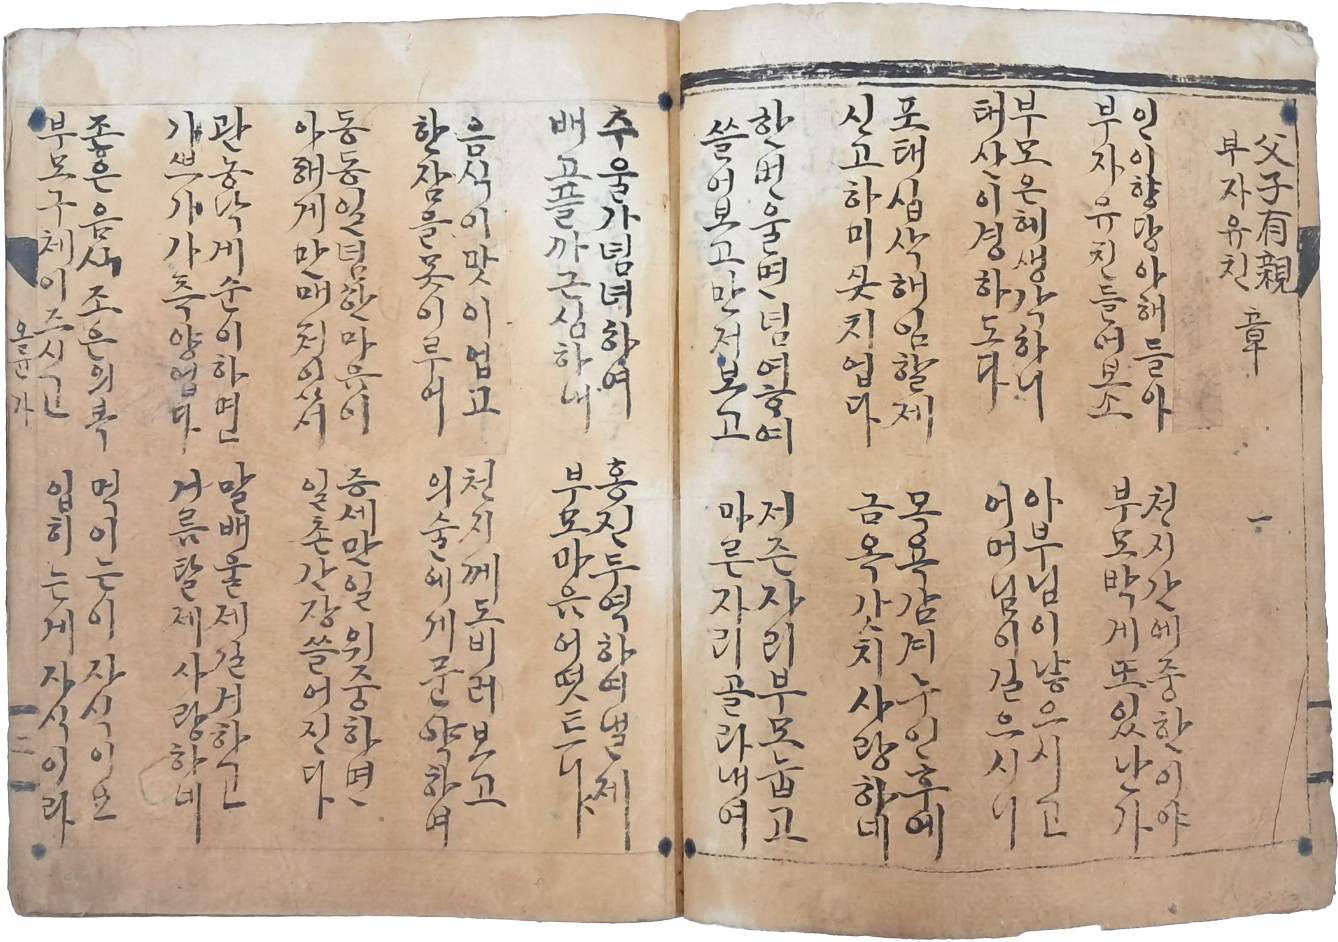 父子有親 章 一
부자유친
인이향당아해들아
부자유친들어보소
천지간에중한이야
부모박게또있난가
부모은혜생각하니
태산이경하도다
아부님이낳으시고
어머님이길으시니
포태십삭해임할제
신고하미웃치업다
목욕감겨누인후에
금옥갓치사랑하데
한번울면념여하여
쓸어보고만저보고
저즌자리부모눕고
마른자리골라내여
추울가념녀하여
배고플까근심하내
홍진두역하여낼제
부모마음어떳트니야
음식이맛이업고
한잠을못이루어
천지께도비러보고
의술에게문약하여
동동일념한마음이
아해게만매처이서
증세만일위중하면
일촌간장쓸어진다
관농낙게순이하면
개쁘기가측양업다
말배울제길거하고
거름탈제사랑하네
조흔은음식조은의복
부모구체이즈시고
먹이는이자식이요
입히는게자식이라
오륜가
二